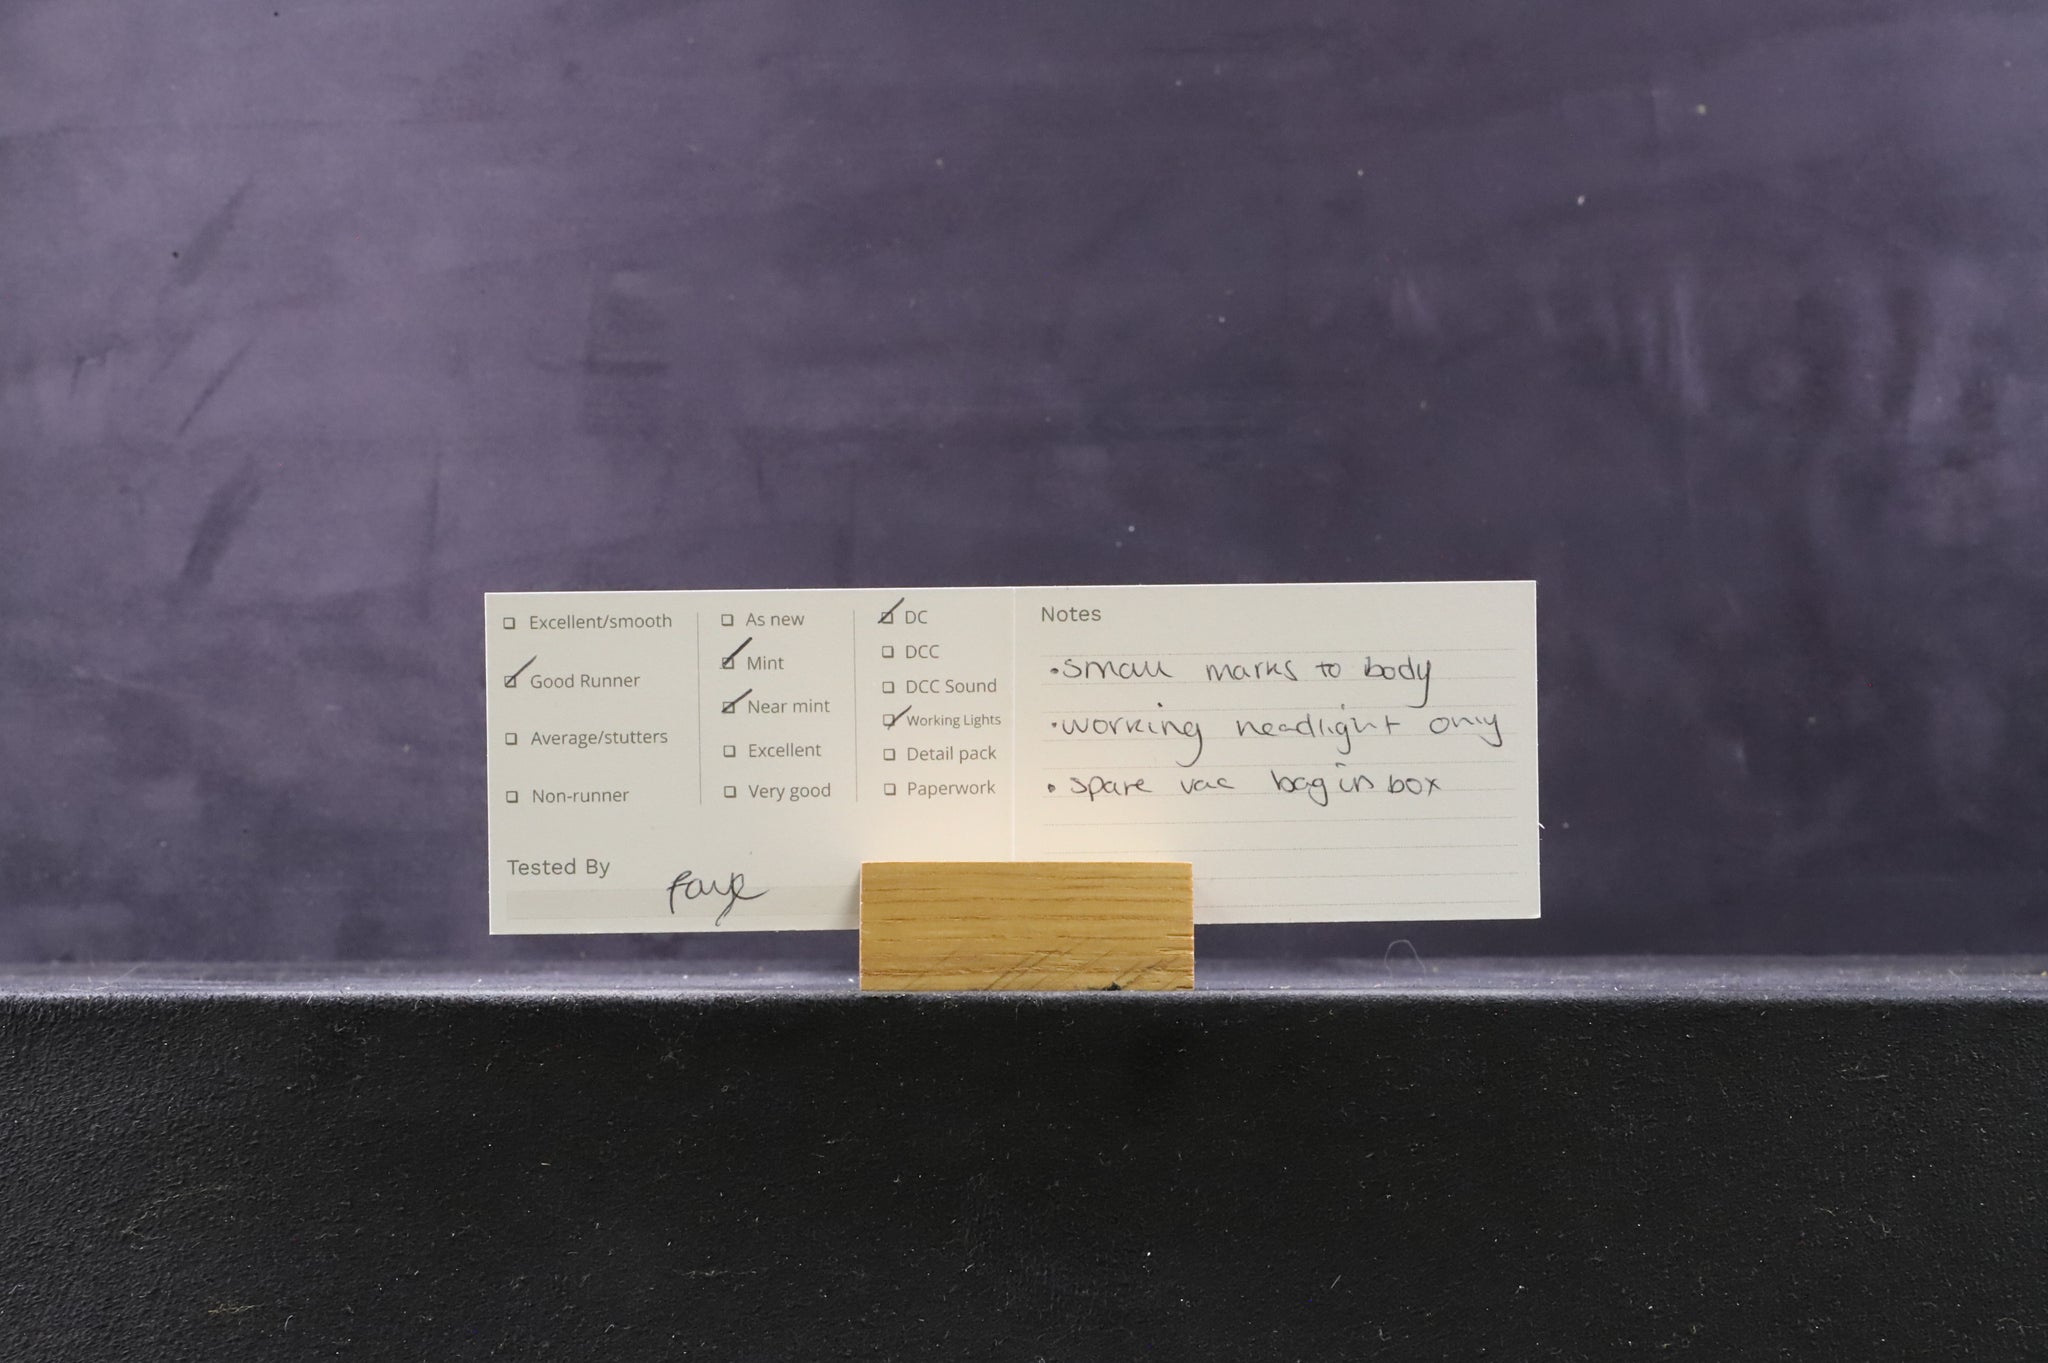 Excellent/smooth
Good Runner
Average/stutters
Non-runner
As new
Mint
Near mint
Excellent
Very good
DC
DCC
DCC Sound
Working Lights
Detail pack
Paperwork
Tested By
Faye
Notes
• small marks to body
• working headlight only
• spare vac bag in box